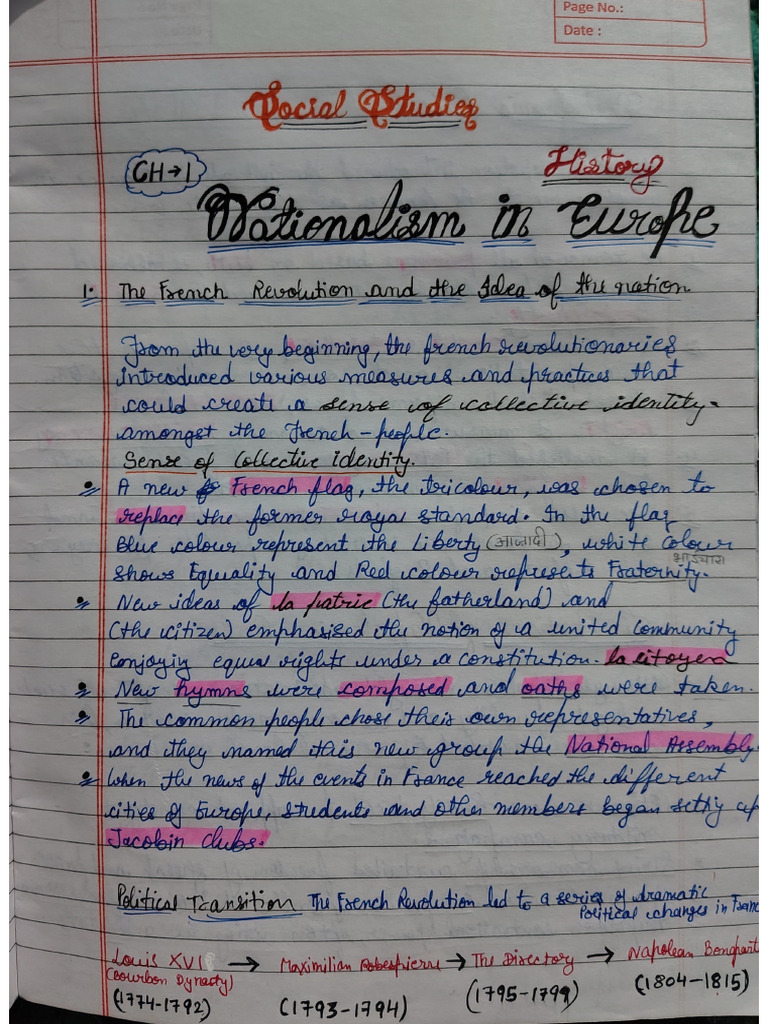 Page No.:
Date :
Social Studies
CH→1
History
Nationalism in Europe
1. The French Revolution and the Idea of the nation
From the very beginning, the french revolutionaries
introduced various measures and practices that
could create a sense of collective identity-
amongst the French-people.
Sense of Collective identity.
A new French flag, the tricolour, was chosen to
replace the former royal standard. In the flag
Blue colour represent the Liberty (आजादी), white Colour
भाईचारा
shows Equality and Red colour represents Fraternity.
New ideas of la patrie (the fatherland) and
(the citizen) emphasised the notion of a united community
enjoyig equal rights under a constitution. la citoyen
New hymns were composed and oaths were taken.
The common people chose their own representatives,
and they named this new group the National Assembly.
When the news of the events in France reached the different
cities of Europe, students and other members began settig up
Jacobin clubs.
Political Transition The French Revolution led to a series of dramatic
Political changes in Franc
Louis XVI → Maximilian Robespierre → The Directory → Napolean Bonapart
(Bourbon Dynasty)
(1774-1792) (1793-1794) (1795-1799) (1804-1815)